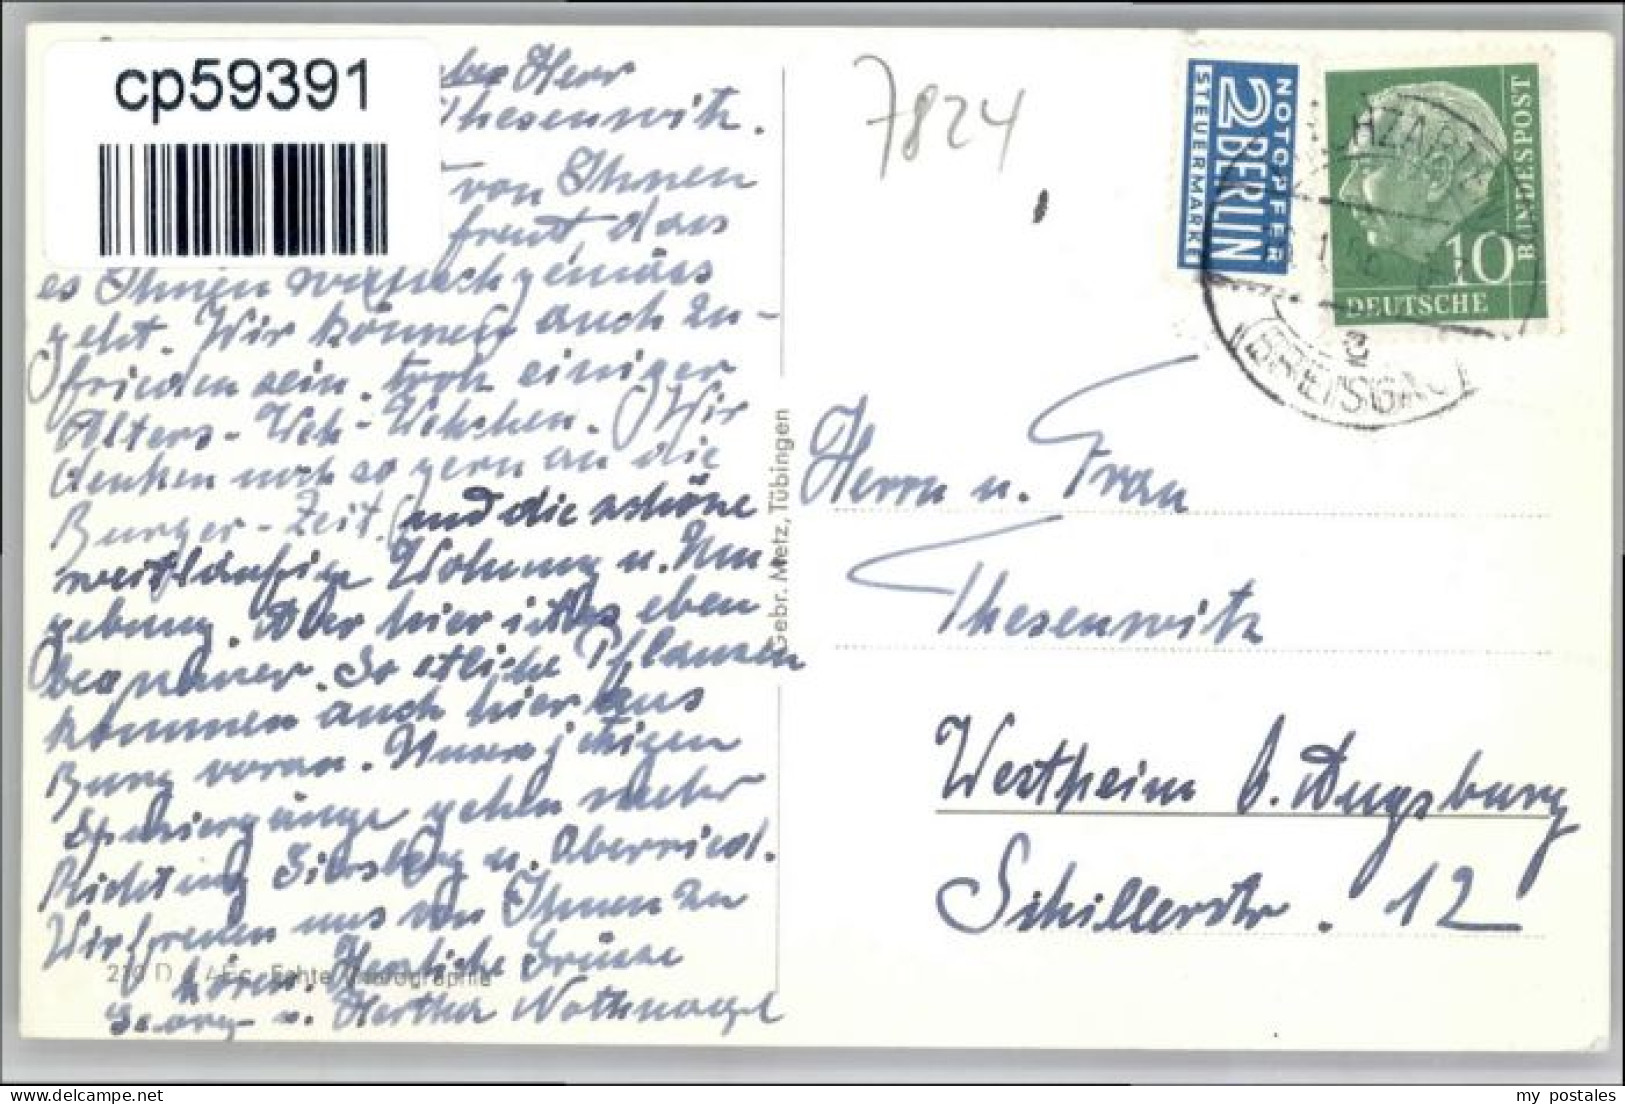 cp59391
Herr
Thesenwitz.
von Ihnen
freut das
es Ihnen wunschgemäss
geht. Wir können auch zu-
frieden sein, trotz einiger
Alters-Weh-Wehchen. Wir
denken noch so gern an die
Burger-Zeit und die schöne
weitläufige Wohnung u. Um-
gebung. Aber hier ist es eben
bequemer. So etliche Pflanzen
kommen auch hier aus
Burg voran. Unsere jetzigen
Spaziergänge gehen mehr
Richtung Giersberg u. Oberried.
Wir freuen uns von Ihnen zu
hören. Herzliche Grüsse
Georg u. Hertha Nothnagel
Echte Photographie
Gebr. Metz, Tübingen
7824
NOTOPFER
2 BERLIN
STEUERMARKE
10
DEUTSCHE
BUNDESPOST
Herrn u. Frau
Thesenwitz
Westheim b. Augsburg
Schillerstr. 12
my postales